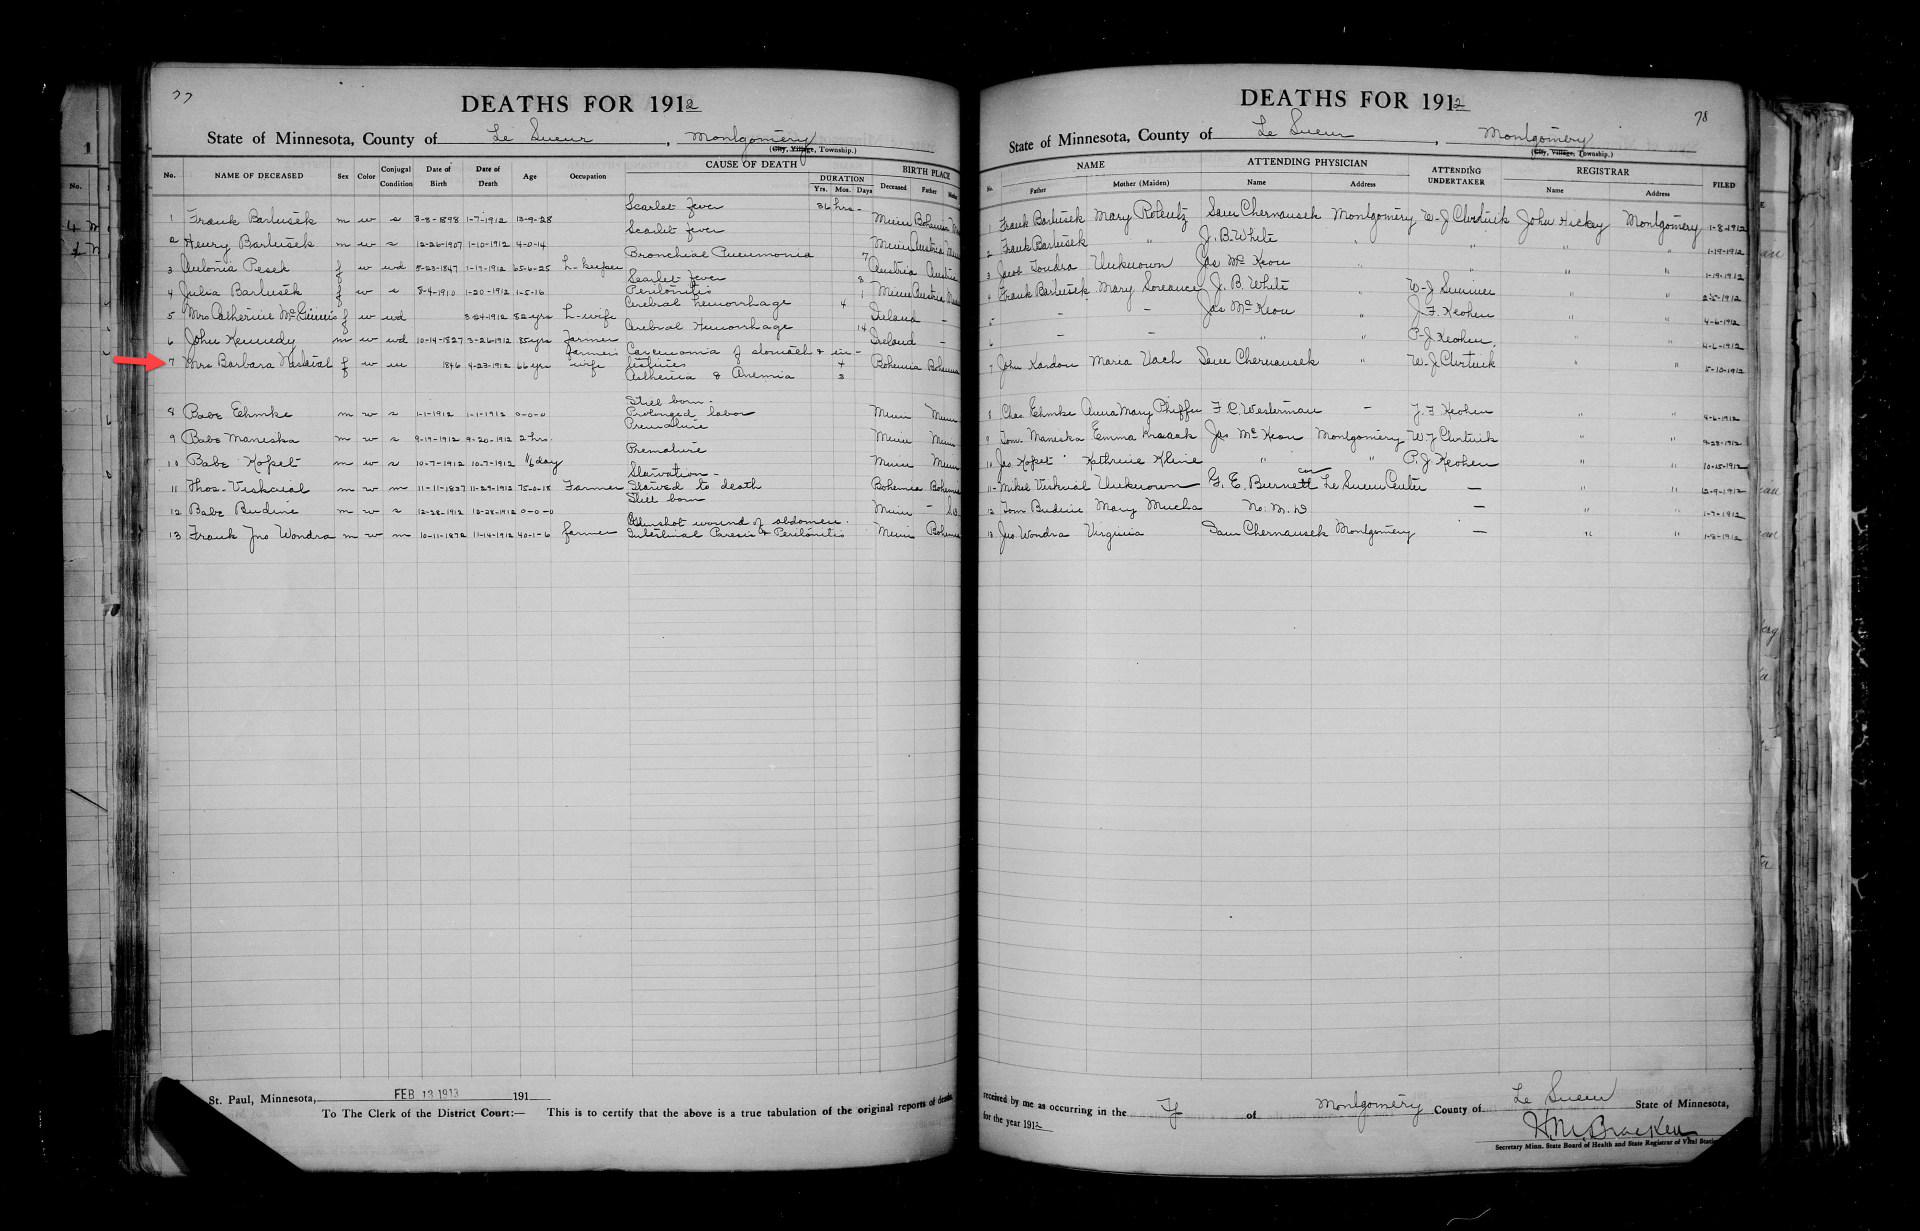 77
DEATHS FOR 1912
State of Minnesota, County of Le Sueur, Montgomery
(City, Village, Township.)
No. NAME OF DECEASED Sex Color Conjugal Condition Date of Birth Date of Death Age Occupation CAUSE OF DEATH DURATION Yrs. Mos. Days BIRTH PLACE Deceased Father
Scarlet fever 36 hrs-
1 Frank Bartusek m w s 3-8-1898 1-7-1912 13-9-28 Minn Bohemia
Scarlet fever
2 Henry Bartusek m w s 12-26-1907 1-10-1912 4-0-14 Minn Austria
Bronchial Pneumonia 7
3 Antonia Pesek f w wd 5-23-1847 1-17-1912 65-6-25 H-keeper Austria Austria
Scarlet Fever 8
4 Julia Bartusek f w s 8-4-1910 1-20-1912 1-5-16 Peritonitis 1 Minn Austria
Cerebral hemorrhage 4
5 Mrs Catherine f w wd 3-24-1912 82 yrs H-wife Ireland -
Cerebral Hemorrhage 14
6 John Kennedy m w wd 10-14-1827 3-26-1912 85 yrs Farmer Ireland -
farmers Carcinoma of stomach & in-
7 Mrs Barbara f w m 1846 4-23-1912 66 yrs wife testines 4 Bohemia Bohemia
Asthenia & Anemia 3
Still born-
8 Babe Ehmke m w s 1-1-1912 1-1-1912 0-0-0 Prolonged labor Minn Minn
Premature
9 Babe Maneska m w s 9-19-1912 9-20-1912 2 hrs. Minn Minn
Premature
10 Babe Kofset m w s 10-7-1912 10-7-1912 1/6 day Minn Minn
Starvation-
11 Thos. Viskocial m w m 11-11-1837 11-29-1912 75-0-18 Farmer Starved to death Bohemia Bohemia
Still born
12 Babe Budine m w s 12-28-1912 12-28-1912 0-0-0 Minn -
Gunshot wound of abdomen.
13 Frank Jno Wondra m w m 10-11-1872 11-14-1912 40-1-6 farmer Intestinal Paresis & Peritonitis Minn Bohemia
St. Paul, Minnesota, FEB 13 1913 191
To The Clerk of the District Court:— This is to certify that the above is a true tabulation of the original reports of deaths
78
DEATHS FOR 1912
State of Minnesota, County of Le Sueur, Montgomery
(City, Village, Township.)
No. NAME Father Mother (Maiden) ATTENDING PHYSICIAN Name Address ATTENDING UNDERTAKER REGISTRAR Name Address FILED
1 Frank Bartusek Mary Sam Chernausek Montgomery W-J John Hickey Montgomery 1-8-1912
2 Frank Bartusek " J. B. White " " " " 1-19-1912
3 Jacob Tondra Unknown Jas McKeon " " " " 1-19-1912
4 Frank Bartusek Mary J. B. White " W-J " " 2-5-1912
5 - - Jas McKeon " J. F. Keohen " " 4-6-1912
6 - - " " P-J Keohen, " " 4-6-1912
7 John Kardon Maria Vach Sam Chernausek " W-J " " 5-10-1912
8 Chas. Ehmke Anna Mary Phiffer F. C. Westerman - J. F. Keohen " " 4-6-1912
9 Tom. Maneska Emma Jas McKeon Montgomery W J " " 9-28-1912
10 Jas Kofset Kathrine Kline " " P. J. Keohen " " 10-15-1912
11- Mike Viskocial Unknown G. E. Burnett Le Sueur Center - " " 12-9-1912
12 Tom Budine Mary Mucha No. M. D - " " 1-7-1912
13 Jno Wondra Virginia Sam Chernausek Montgomery - " " 1-8-1912
received by me as occurring in the of Montgomery County of Le Sueur State of Minnesota,
for the year 1912
H.M. Bracken
Secretary Minn. State Board of Health and State Registrar of Vital Statis